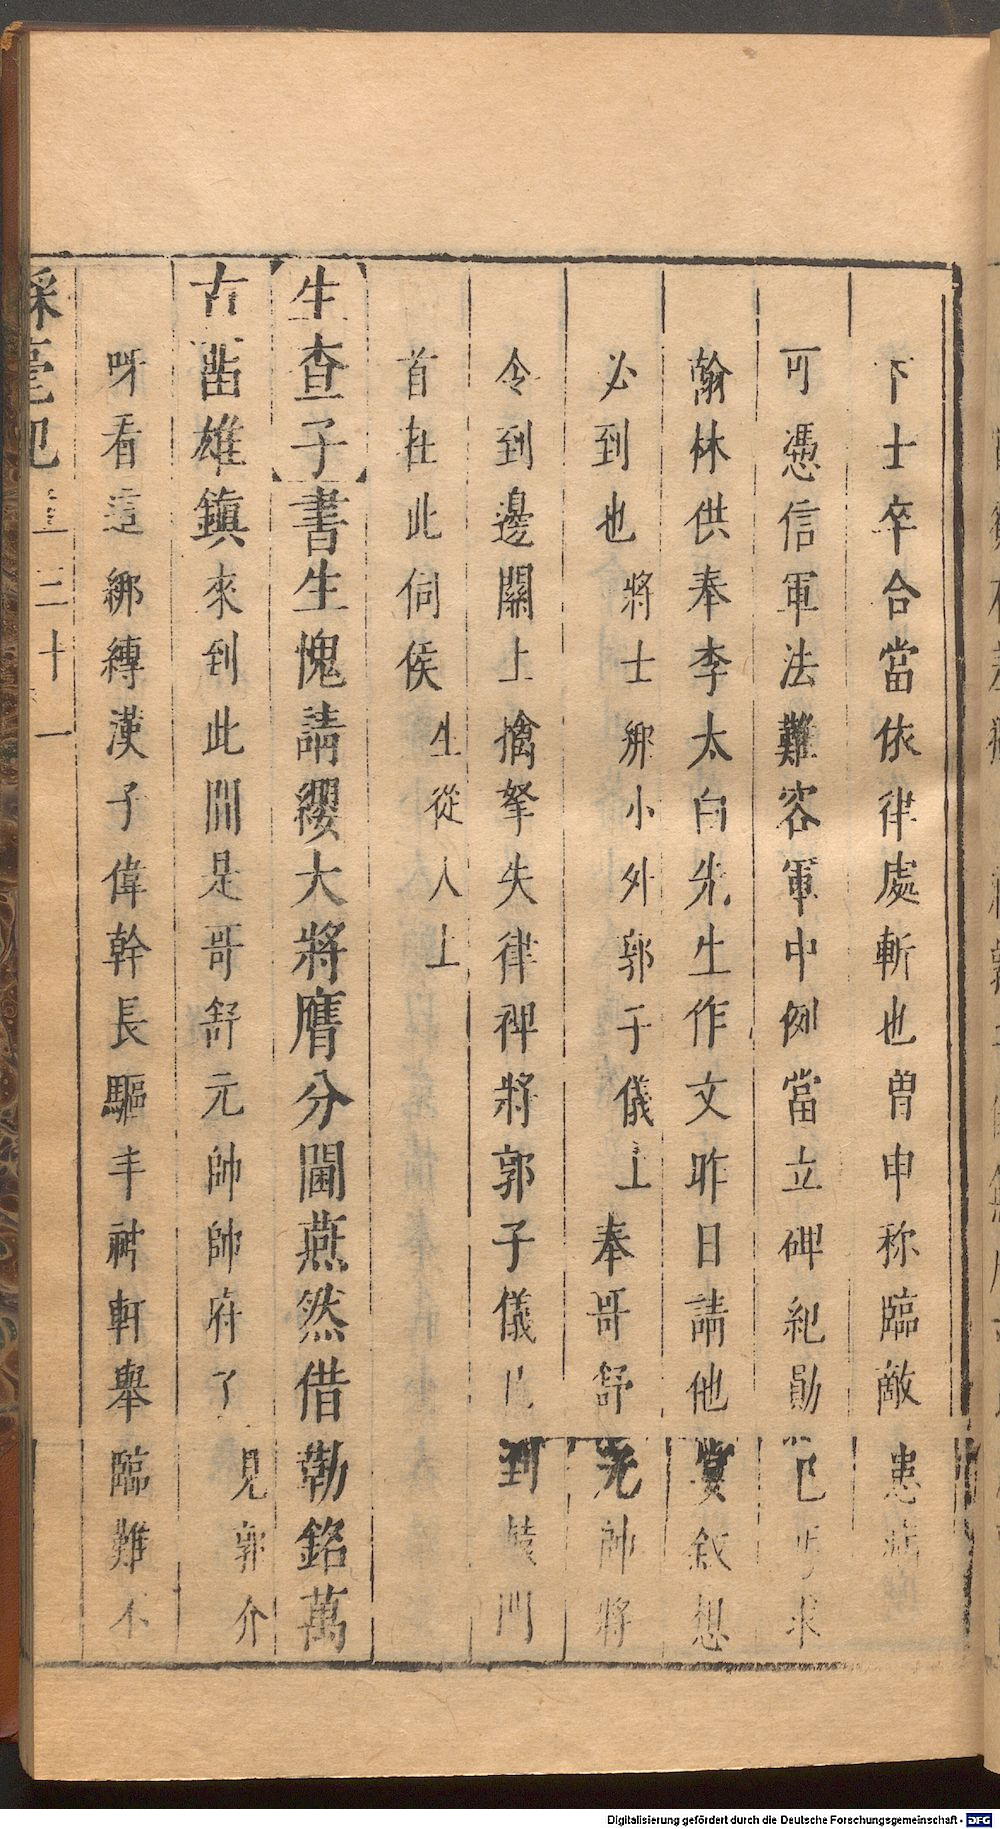 下士卒合當依律處斬也曽申称臨敵患病
可憑信軍法難容軍中例當立碑紀勛已
翰林供奉李太白先生作文昨日請他宴叙想
必到也將士綁小外郭子儀上奉哥舒元帥將
令到邊關上擒拏失律裨將郭子儀到轅門
首在此伺侯生從人上
生查子書生愧請纓大將膺分閫燕然借勒銘萬
古凿雄鎮來到此間是哥舒元帥帥府了見郭介
呀看這綁縛漢子偉幹長軀丰神軒舉臨難不
綵毫記 三十一
Digitalisierung gefördert durch die Deutsche Forschungsgemeinschaft - DFG